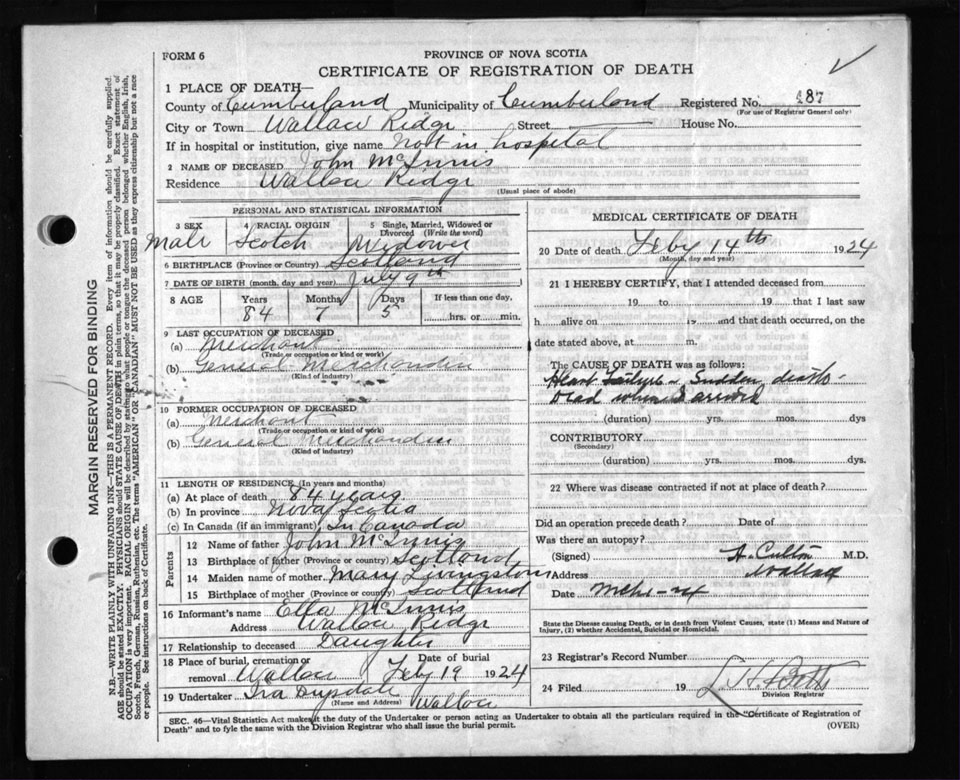 FORM 6
PROVINCE OF NOVA SCOTIA
CERTIFICATE OF REGISTRATION OF DEATH
1 PLACE OF DEATH—
County of Cumberland Municipality of Cumberland Registered No. 487
(For use of Registrar General only)
City or Town Wallace Ridge Street House No.
If in hospital or institution, give name Not in hospital
2 NAME OF DECEASED John McInnis
Residence Wallace Ridge
(Usual place of abode)
PERSONAL AND STATISTICAL INFORMATION
3 SEX 4 RACIAL ORIGIN 5 Single, Married, Widowed or Divorced (Write the word)
Male Scotch Widower
6 BIRTHPLACE (Province or Country) Scotland
7 DATE OF BIRTH (month, day and year) July 9th
8 AGE Years Months Days If less than one day,
84 7 5 hrs. or min.
9 LAST OCCUPATION OF DECEASED
(a) Merchant
(Trade or occupation or kind or work)
(b) General
(Kind of industry)
10 FORMER OCCUPATION OF DECEASED
(a) Merchant
(Trade or occupation or kind or work)
(b) General
(Kind of industry)
11 LENGTH OF RESIDENCE (In years and months)
(a) At place of death 84 years
(b) In province Nova Scotia
(c) In Canada (if an immigrant) In Canada
Parents
12 Name of father John McInnis
13 Birthplace of father (Province or country) Scotland
14 Maiden name of mother Mary Livingston
15 Birthplace of mother (Province or country) Scotland
16 Informant's name Ella McInnis
Address Wallace Ridge
17 Relationship to deceased Daughter
18 Place of burial, cremation or removal Wallace Date of burial Feby 19 1924
19 Undertaker Ira Drysdale Wallace
(Name and Address)
MEDICAL CERTIFICATE OF DEATH
20 Date of death Feby 14th 1924
(Month, day and year)
21 I HEREBY CERTIFY, that I attended deceased from
19 to 19 that I last saw
h alive on 19 and that death occurred, on
date stated above, at m.
The CAUSE OF DEATH was as follows:
Heart Failure - Sudden death -
Dead when I arrived
(duration) yrs. mos. dys
CONTRIBUTORY
(Secondary)
(duration) yrs. mos. dys.
22 Where was disease contracted if not at place of death?
Did an operation precede death? Date of
Was there an autopsy?
(Signed) M.D.
Address Wallace
Date
State the Disease causing Death, or in death from Violent Causes, state (1) Means and Nature of
Injury, (2) whether Accidental, Suicidal or Homicidal.
23 Registrar's Record Number
24 Filed 19
Division Registrar
SEC. 46—Vital Statistics Act makes it the duty of the Undertaker or person acting as Undertaker to obtain all the particulars required in the "Certificate of Registration of
Death" and to fyle the same with the Division Registrar who shall issue the burial permit. (OVER)
MARGIN RESERVED FOR BINDING
N.B.—WRITE PLAINLY WITH UNFADING INK—THIS IS A PERMANENT RECORD. Every item of information should be carefully supplied.
AGE should be stated EXACTLY. PHYSICIANS should STATE CAUSE OF DEATH in plain terms, so that it may be properly classified. Exact statement of
OCCUPATION is very important. RACIAL ORIGIN will be described by stating to what people or tongue the deceased person belonged whether English, Irish,
Scotch, French, German, Russian, Ruthenian, etc. The terms "AMERICAN" OR "CANADIAN" MUST NOT BE USED as they express citizenship but not a race
or people. See instructions on back of Certificate.